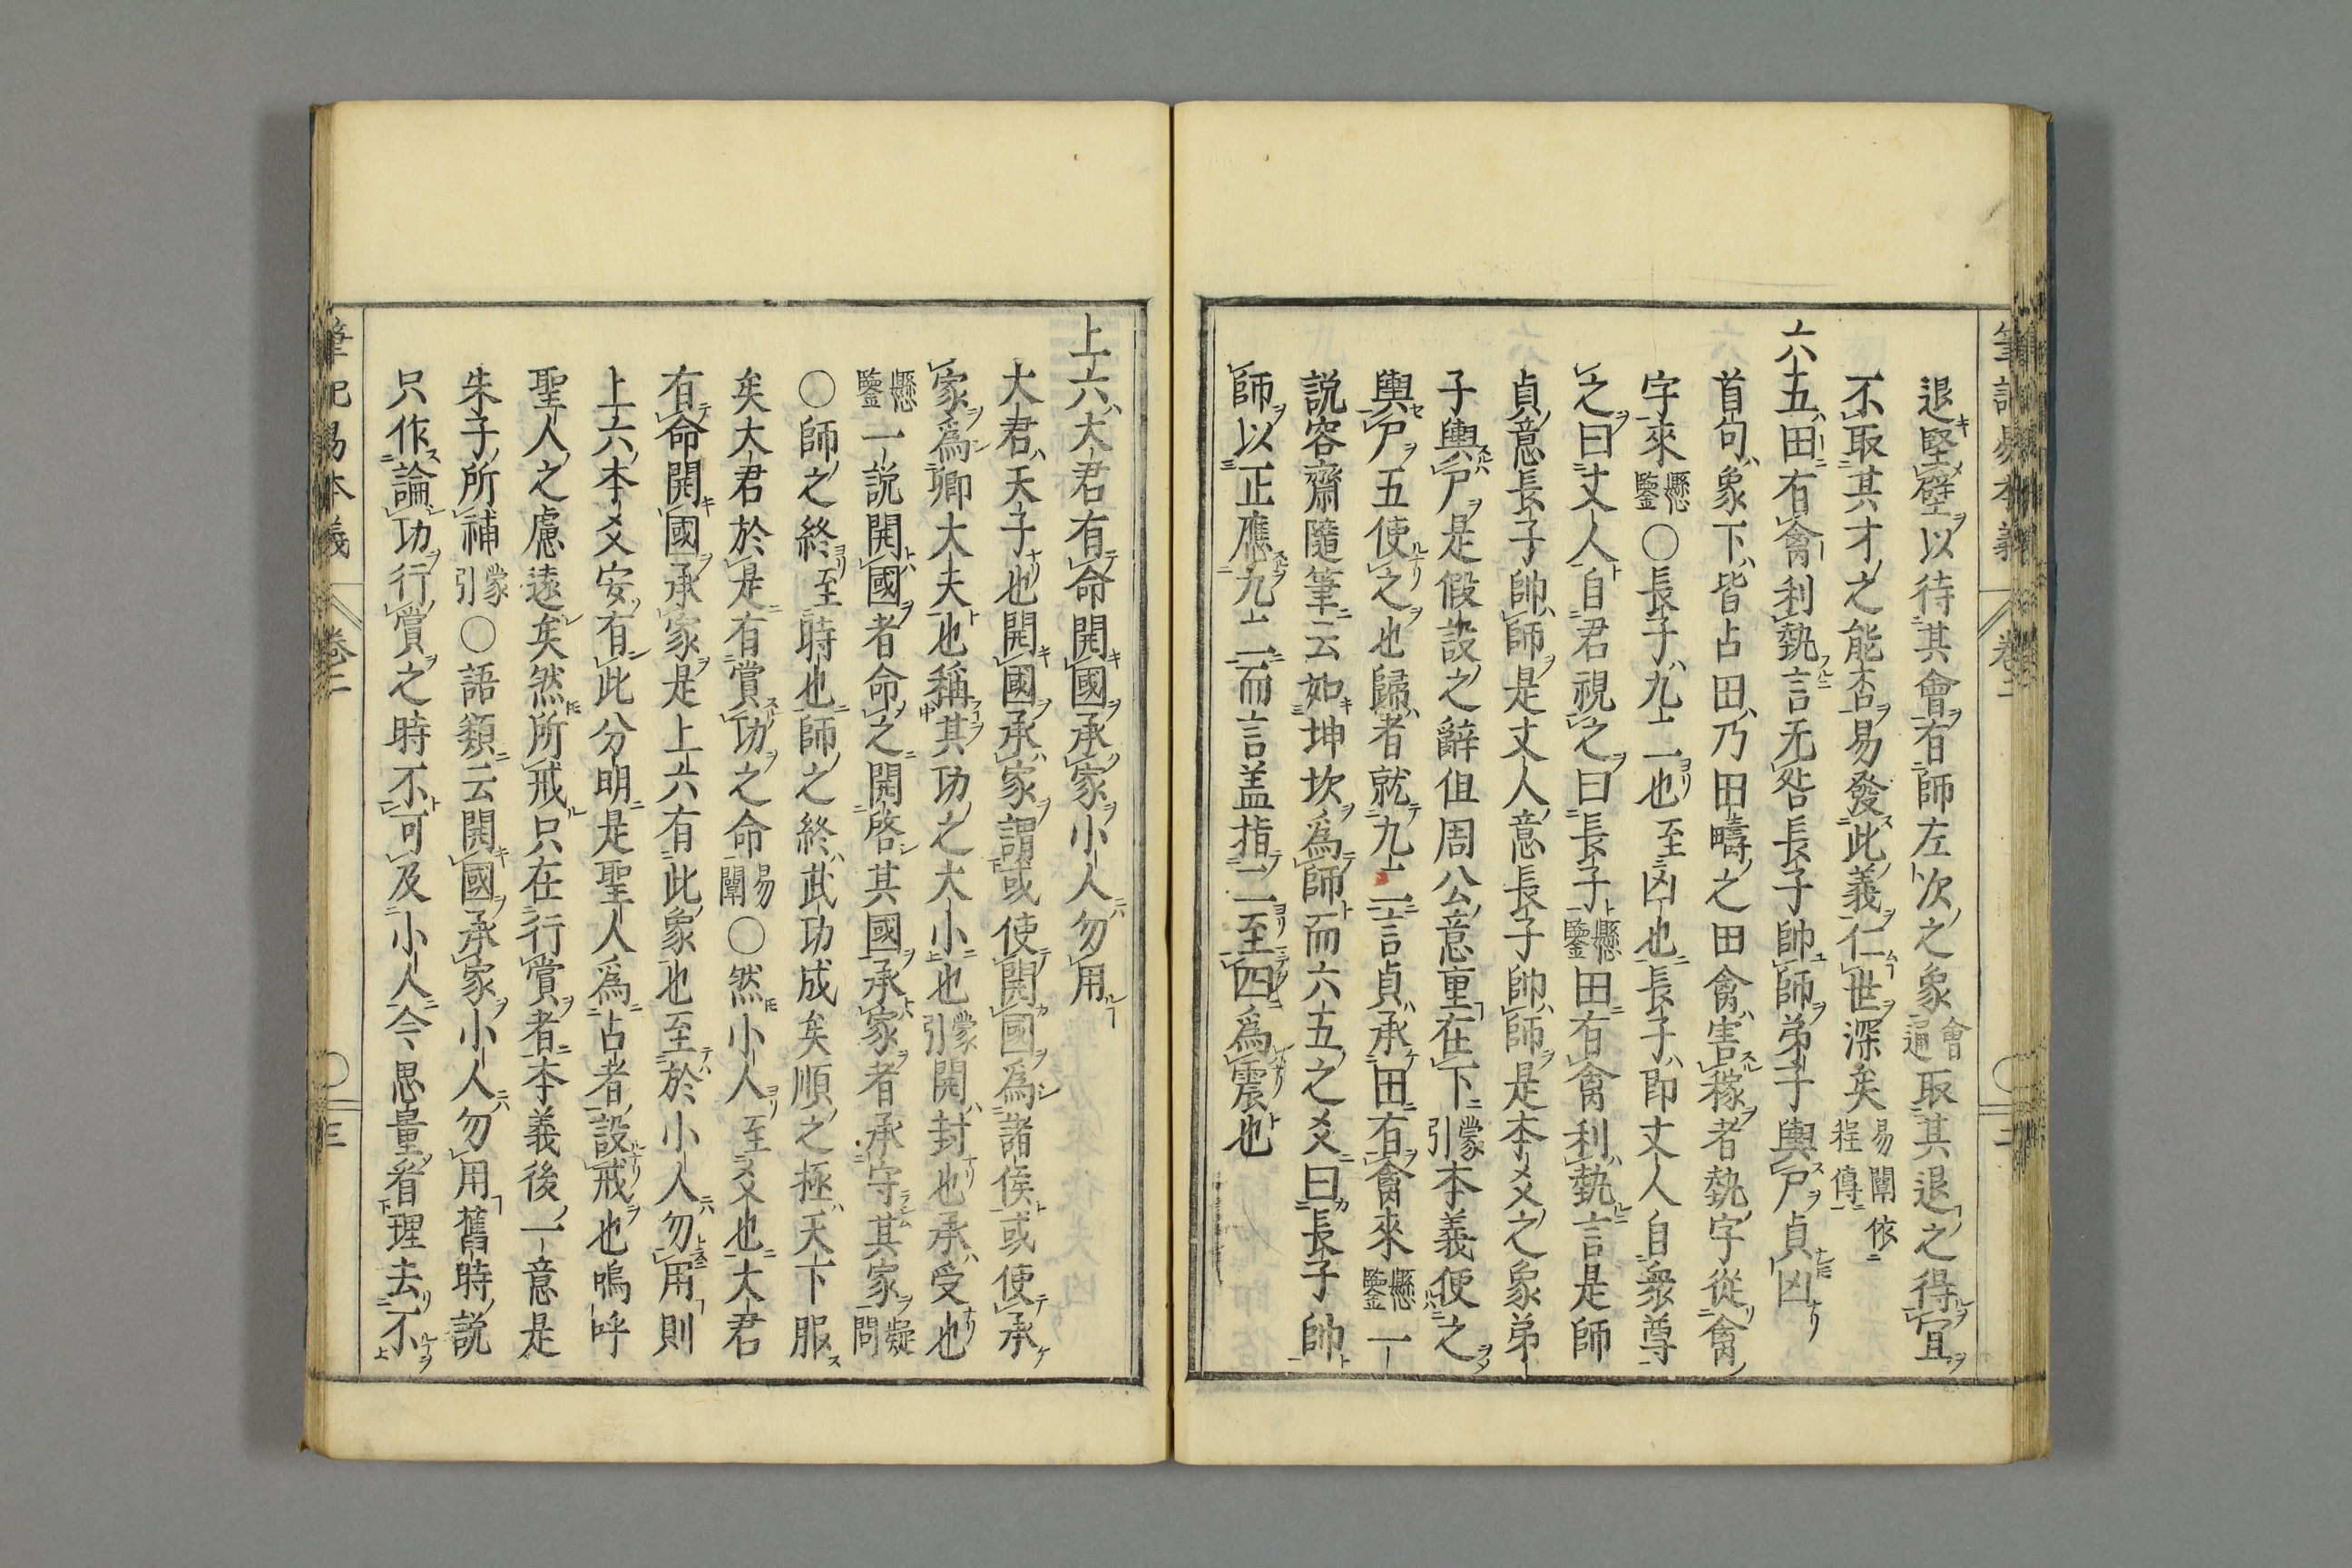 退堅壁以待其會有師左次之象會通取其退之得宜
不取其才之能否易發此義仁世深矣易闡依程傳
六五田有禽利執言无咎長子帥師弟子輿尸貞凶
首句象下皆占田乃田疇之田禽害稼者執字從禽
字來懸鑒○長子九二也至凶也長子即丈人自衆尊
之曰丈人自君視之曰長子懸鑒田有禽利執言是師
貞意長子帥師是丈人意長子帥師是本爻之象弟
子輿尸是假設之辭但周公意重在下蒙引本義便之
輿尸五使之也歸者就九二言貞承田有禽來懸鑒一
説容齋隨筆云如坤坎為師而六五之爻曰長子帥
師以正應九二而言盖指二至四為震也
筆記易本義 卷二
上六大君有命開國承家小人勿用
大君天子也開國承家謂或使開國為諸侯或使承
家為卿大夫也稱其功之大小也蒙引開封也承受也
懸鑒一説開國者命之開啓其國承家者承守其家疑問
○師之終至時也師之終武功成矣順之極天下服
矣大君於是有賞功之命易闡○然小人至爻也大君
有命開國承家是上六有此象也至於小人勿用則
上六本爻安有此分明是聖人為占者設戒也嗚呼
聖人之慮遠矣然所戒只在行賞者本義後一意是
朱子所補蒙引○語類云開國承家小人勿用舊時説
只作論功行賞之時不可及小人今思量看理去不
筆記易本義 卷二 三